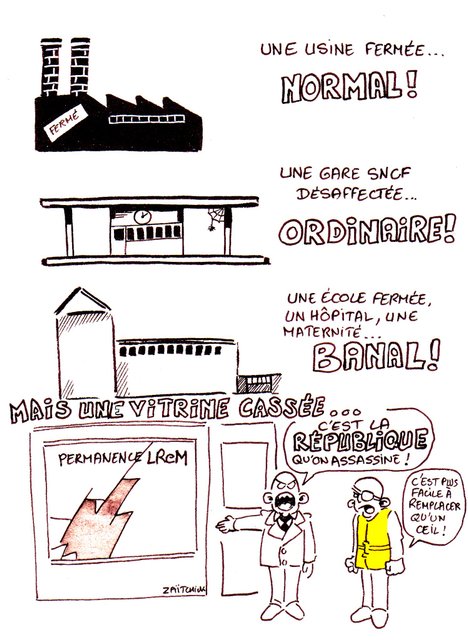 UNE USINE FERMÉE...
NORMAL!
FERMÉ
UNE GARE SNCF
DÉSAFFECTÉE...
ORDINAIRE!
UNE ÉCOLE FERMÉE,
UN HÔPITAL, UNE
MATERNITÉ...
BANAL!
MAIS UNE VITRINE CASSÉE...
C'EST LA
RÉPUBLIQUE
QU'ON ASSASSINE!
PERMANENCE LREM
C'EST PLUS
FACILE À
REMPLACER
QU'UN
ŒIL!